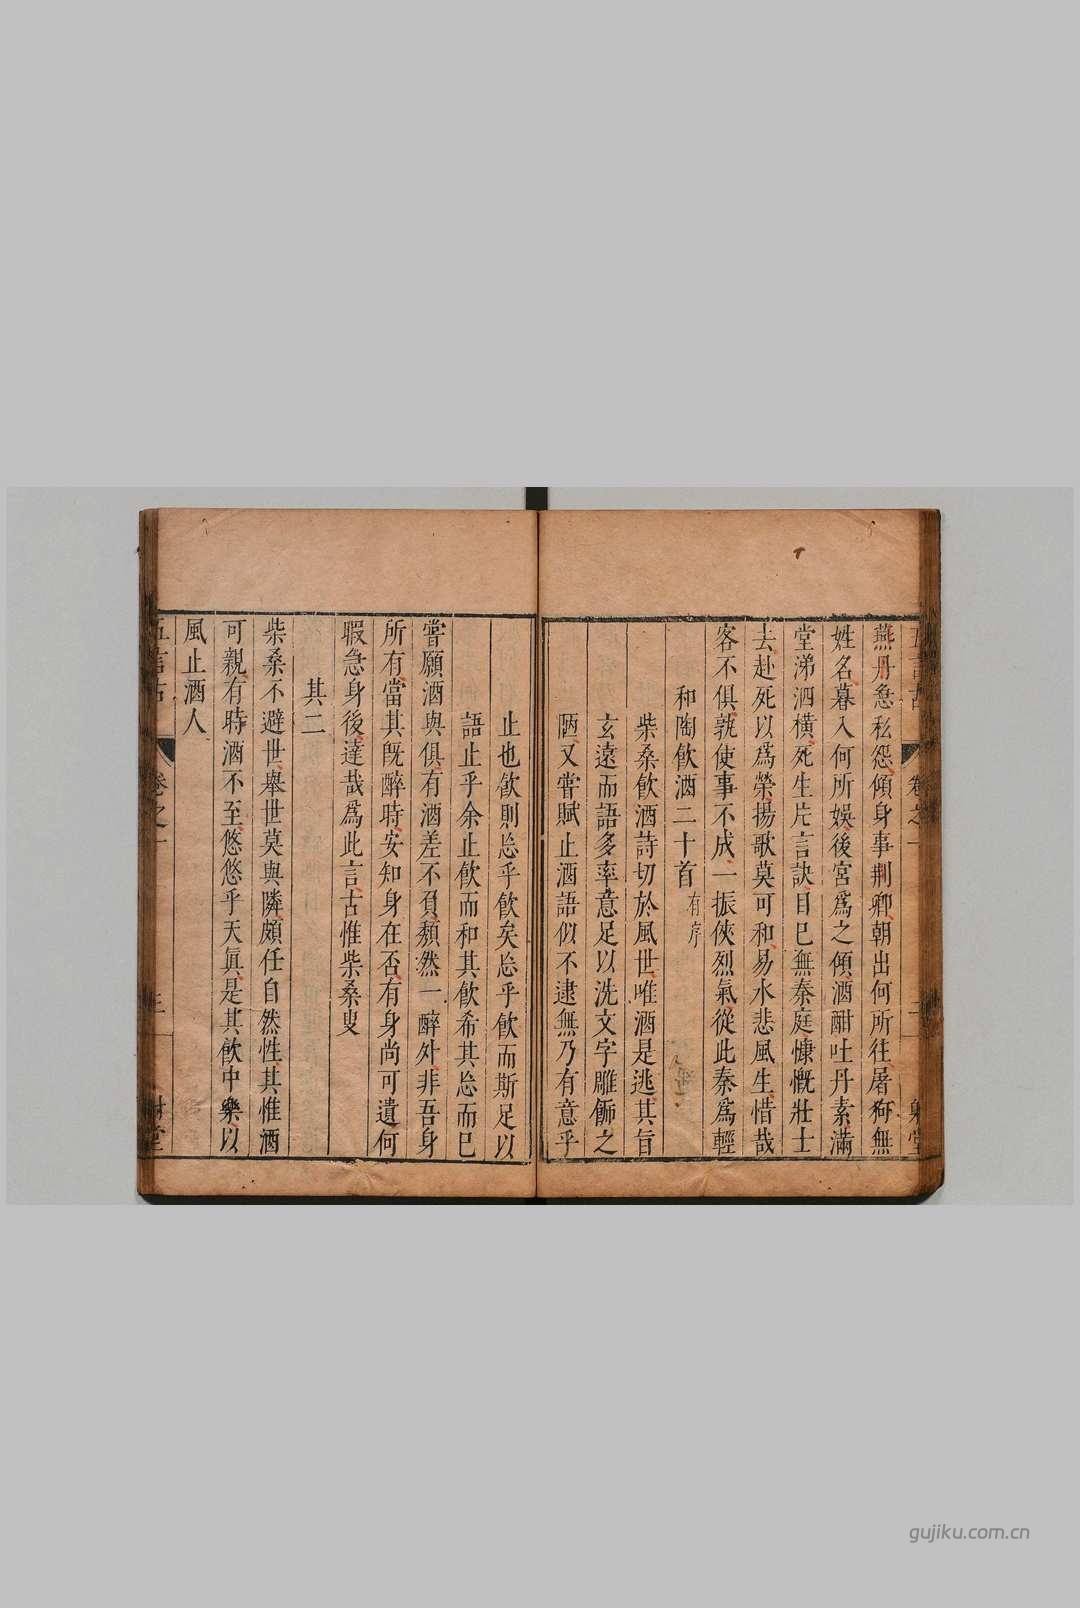 燕丹急私怨傾身事荆卿朝出何所往屠狗無
姓名暮入何所娛後宮爲之傾酒酣吐丹素滿
堂涕泗橫死生片言訣目已無秦庭慷慨壯士
去赴死以爲榮揚歌莫可和易水悲風生惜哉
客不俱孰使事不成一振俠烈氣從此秦爲輕
和陶飲酒二十首有序
柴桑飲酒詩切於風世唯酒是逃其旨
玄遠而語多率意足以洗文字雕飾之
陋又嘗賦止酒語似不逮無乃有意乎
止也飲則忘乎飲矣忘乎飲而斯足以
語止乎余止飲而和其飲希其忘而已
嘗願酒與俱有酒差不負頹然一醉外非吾身
所有當其旣醉時安知身在否有身尚可遺何
暇急身後達哉爲此言古惟柴桑叟
其二
柴桑不避世舉世莫與隣頗任自然性其惟酒
可親有時酒不至悠悠乎天眞是其飲中樂以
風止酒人
五言古 卷之一 三
gujiku.com.cn